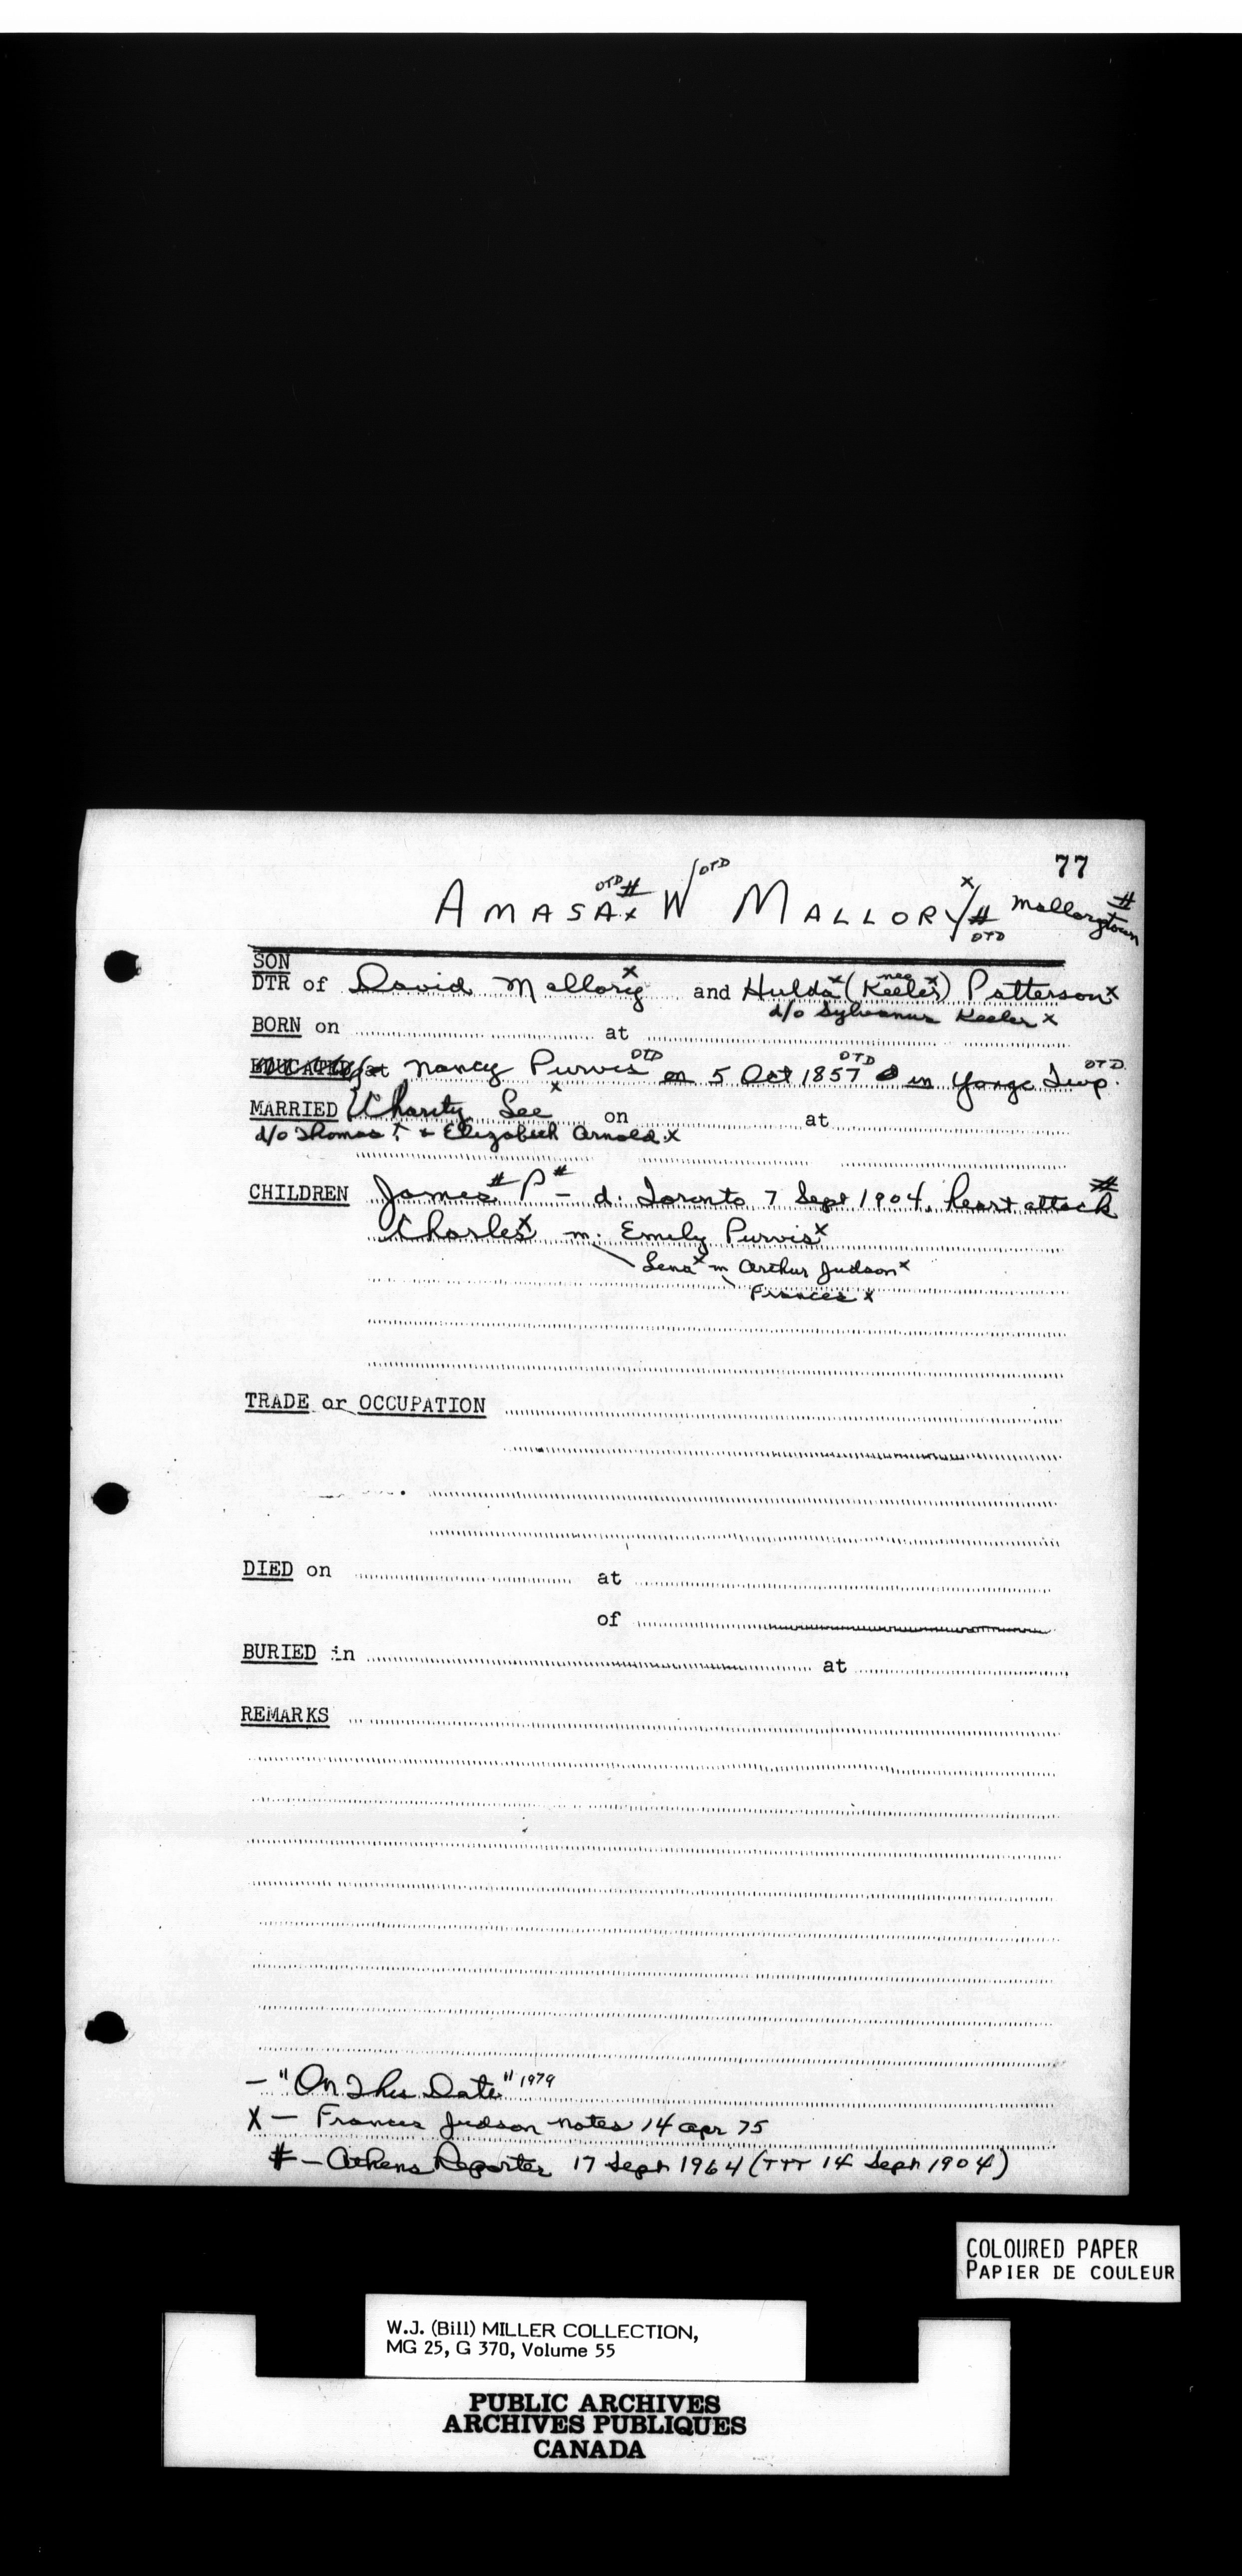 77
OTD # OTD
AMASA x W MALLORY x # OTD Mallorytown #
SON
DTR of David Mallory x and Hulda x (nee Keeler x) Patterson x
d/o Sylvanus Keeler x
BORN on at
EDUCATED at Nancy Purvis OTD on 5 Oct 1857 OTD in Yonge Twp. OTD
MARRIED Charity Lee x on at
d/o Thomas & Elizabeth Arnold x
CHILDREN James # P # - d. Toronto 7 Sept 1904, heart attack #
Charles x m. Emily Purvis x
Lena x m Arthur Judson x
Frances x
TRADE or OCCUPATION
DIED on at
of
BURIED in at
REMARKS
- "On This Date" 1979
X - Frances Judson notes 14 Apr 75
# - Athens Reporter 17 Sept 1964 (TTT 14 Sept 1904)
COLOURED PAPER
PAPIER DE COULEUR
W.J. (Bill) MILLER COLLECTION,
MG 25, G 370, Volume 55
PUBLIC ARCHIVES
ARCHIVES PUBLIQUES
CANADA